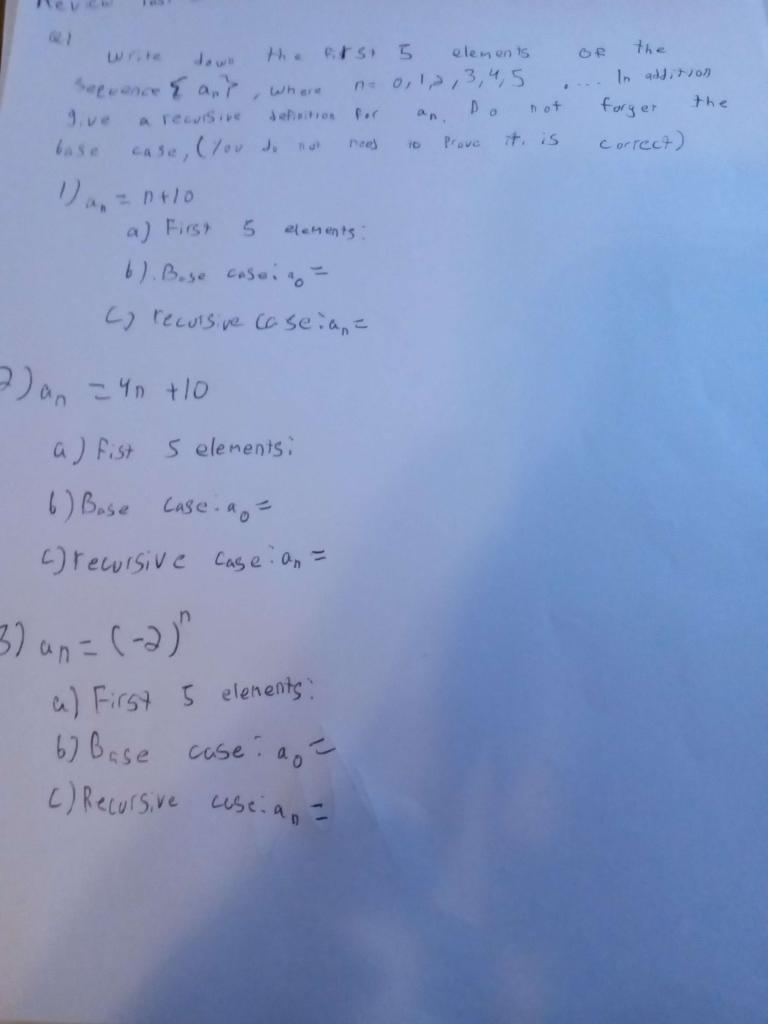 Review
Q1
Write down the first 5 elements OF the
sequence { an}, where n= 0,1,2,3,4,5 .... In addition
give a recursive definition for an. Do not forget the
base case, (You do not need to prove it. is correct)
1) an = n+10
a) First 5 elements:
b). Base case: a0 =
C) recursive case: an =
2) an = 4n +10
a) fist 5 elements:
b) Base case: a0 =
C) recursive case: an =
3) an = (-2)^n
a) First 5 elements:
b) Base case: a0 =
C) Recursive case: an =